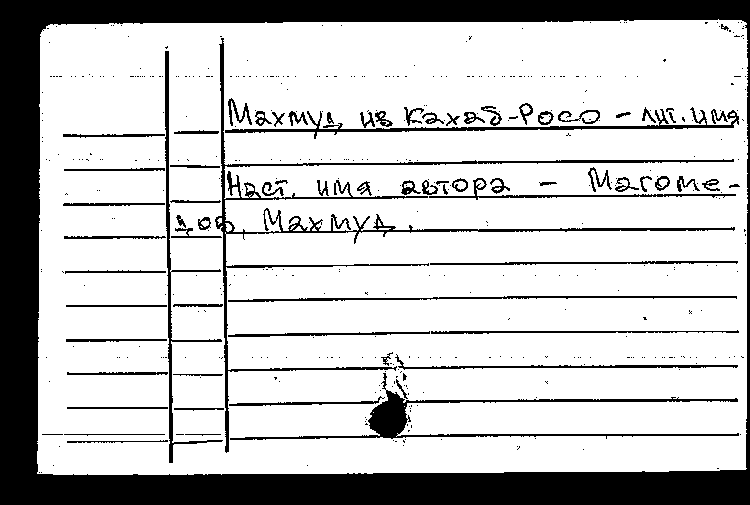 Махмуд из Кахаб-Росо - лит. имя
Наст. имя автора - Магоме-
дов, Махмуд.